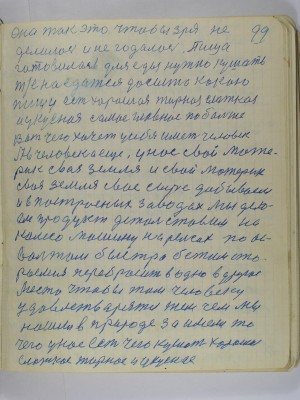 она так это чтобы зря не 99
делилась и не годалась. Пища
готовилась для еды нужно кушать
наедатся досыта какою
пищу ест хорошая жирная сладкая
и вкусная самые главное побольше
Вот чего хочет у себя имет человек
Мы человека еще, у нас свой мате-
рик своя земля и свой материк
своя земля свое сырье добываем
и в построеных заводах мы дела-
ем продукт детал ставлям на
колесо машину на рельсах по ас-
вольтам быстро бежим сто-
раемся перебросить в одно в другое
место чтобы там человеку
удовлетварятся тем чем мы
нашли в природе за имам то
чего у нас ест чего кушат хорошая
сладкое жирное и вкусное